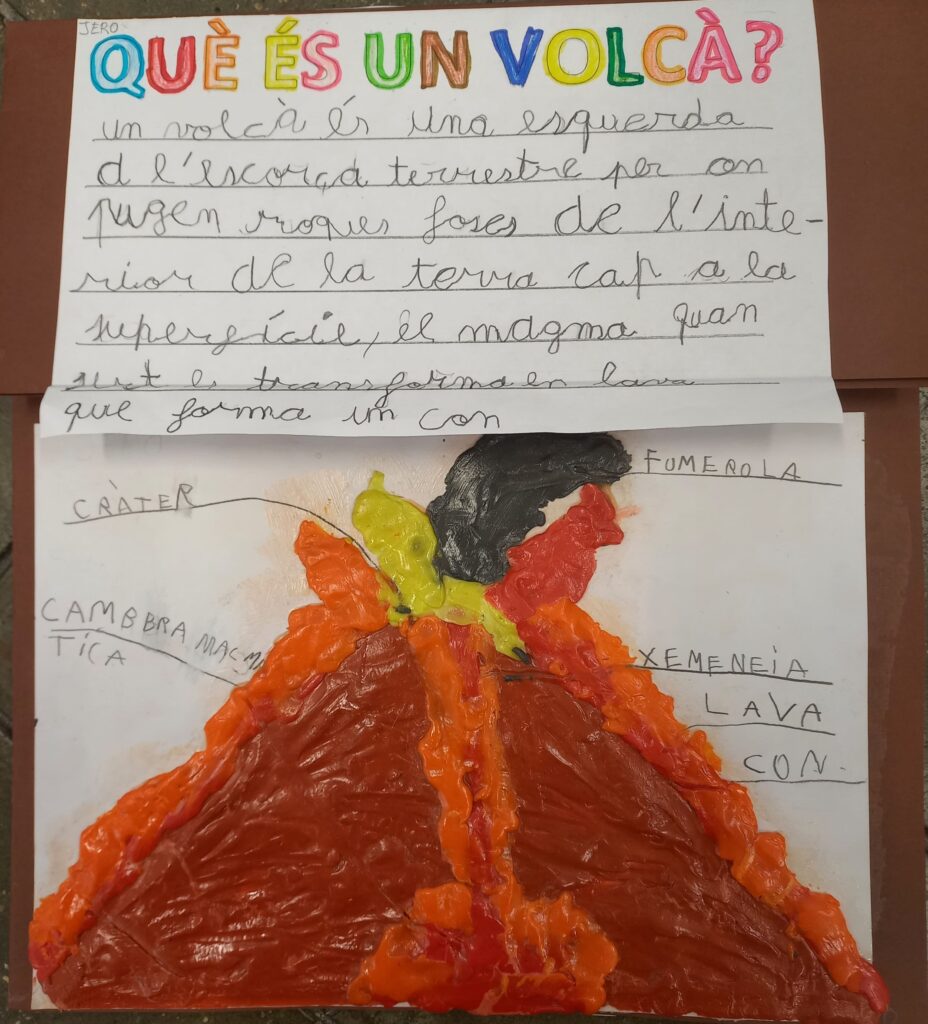 JERO
QUÈ ÉS UN VOLCÀ?
un volcà és una esquerda
d l'escorça terrestre per on
pugen roques foses de l'inte-
rior de la terra cap a la
superfície, el magma quan
surt es transforma en lava
que forma un con
FUMEROLA
CRÀTER
CAMBBRA MAGMA
TÍCA
XEMENEIA
LAVA
CON.